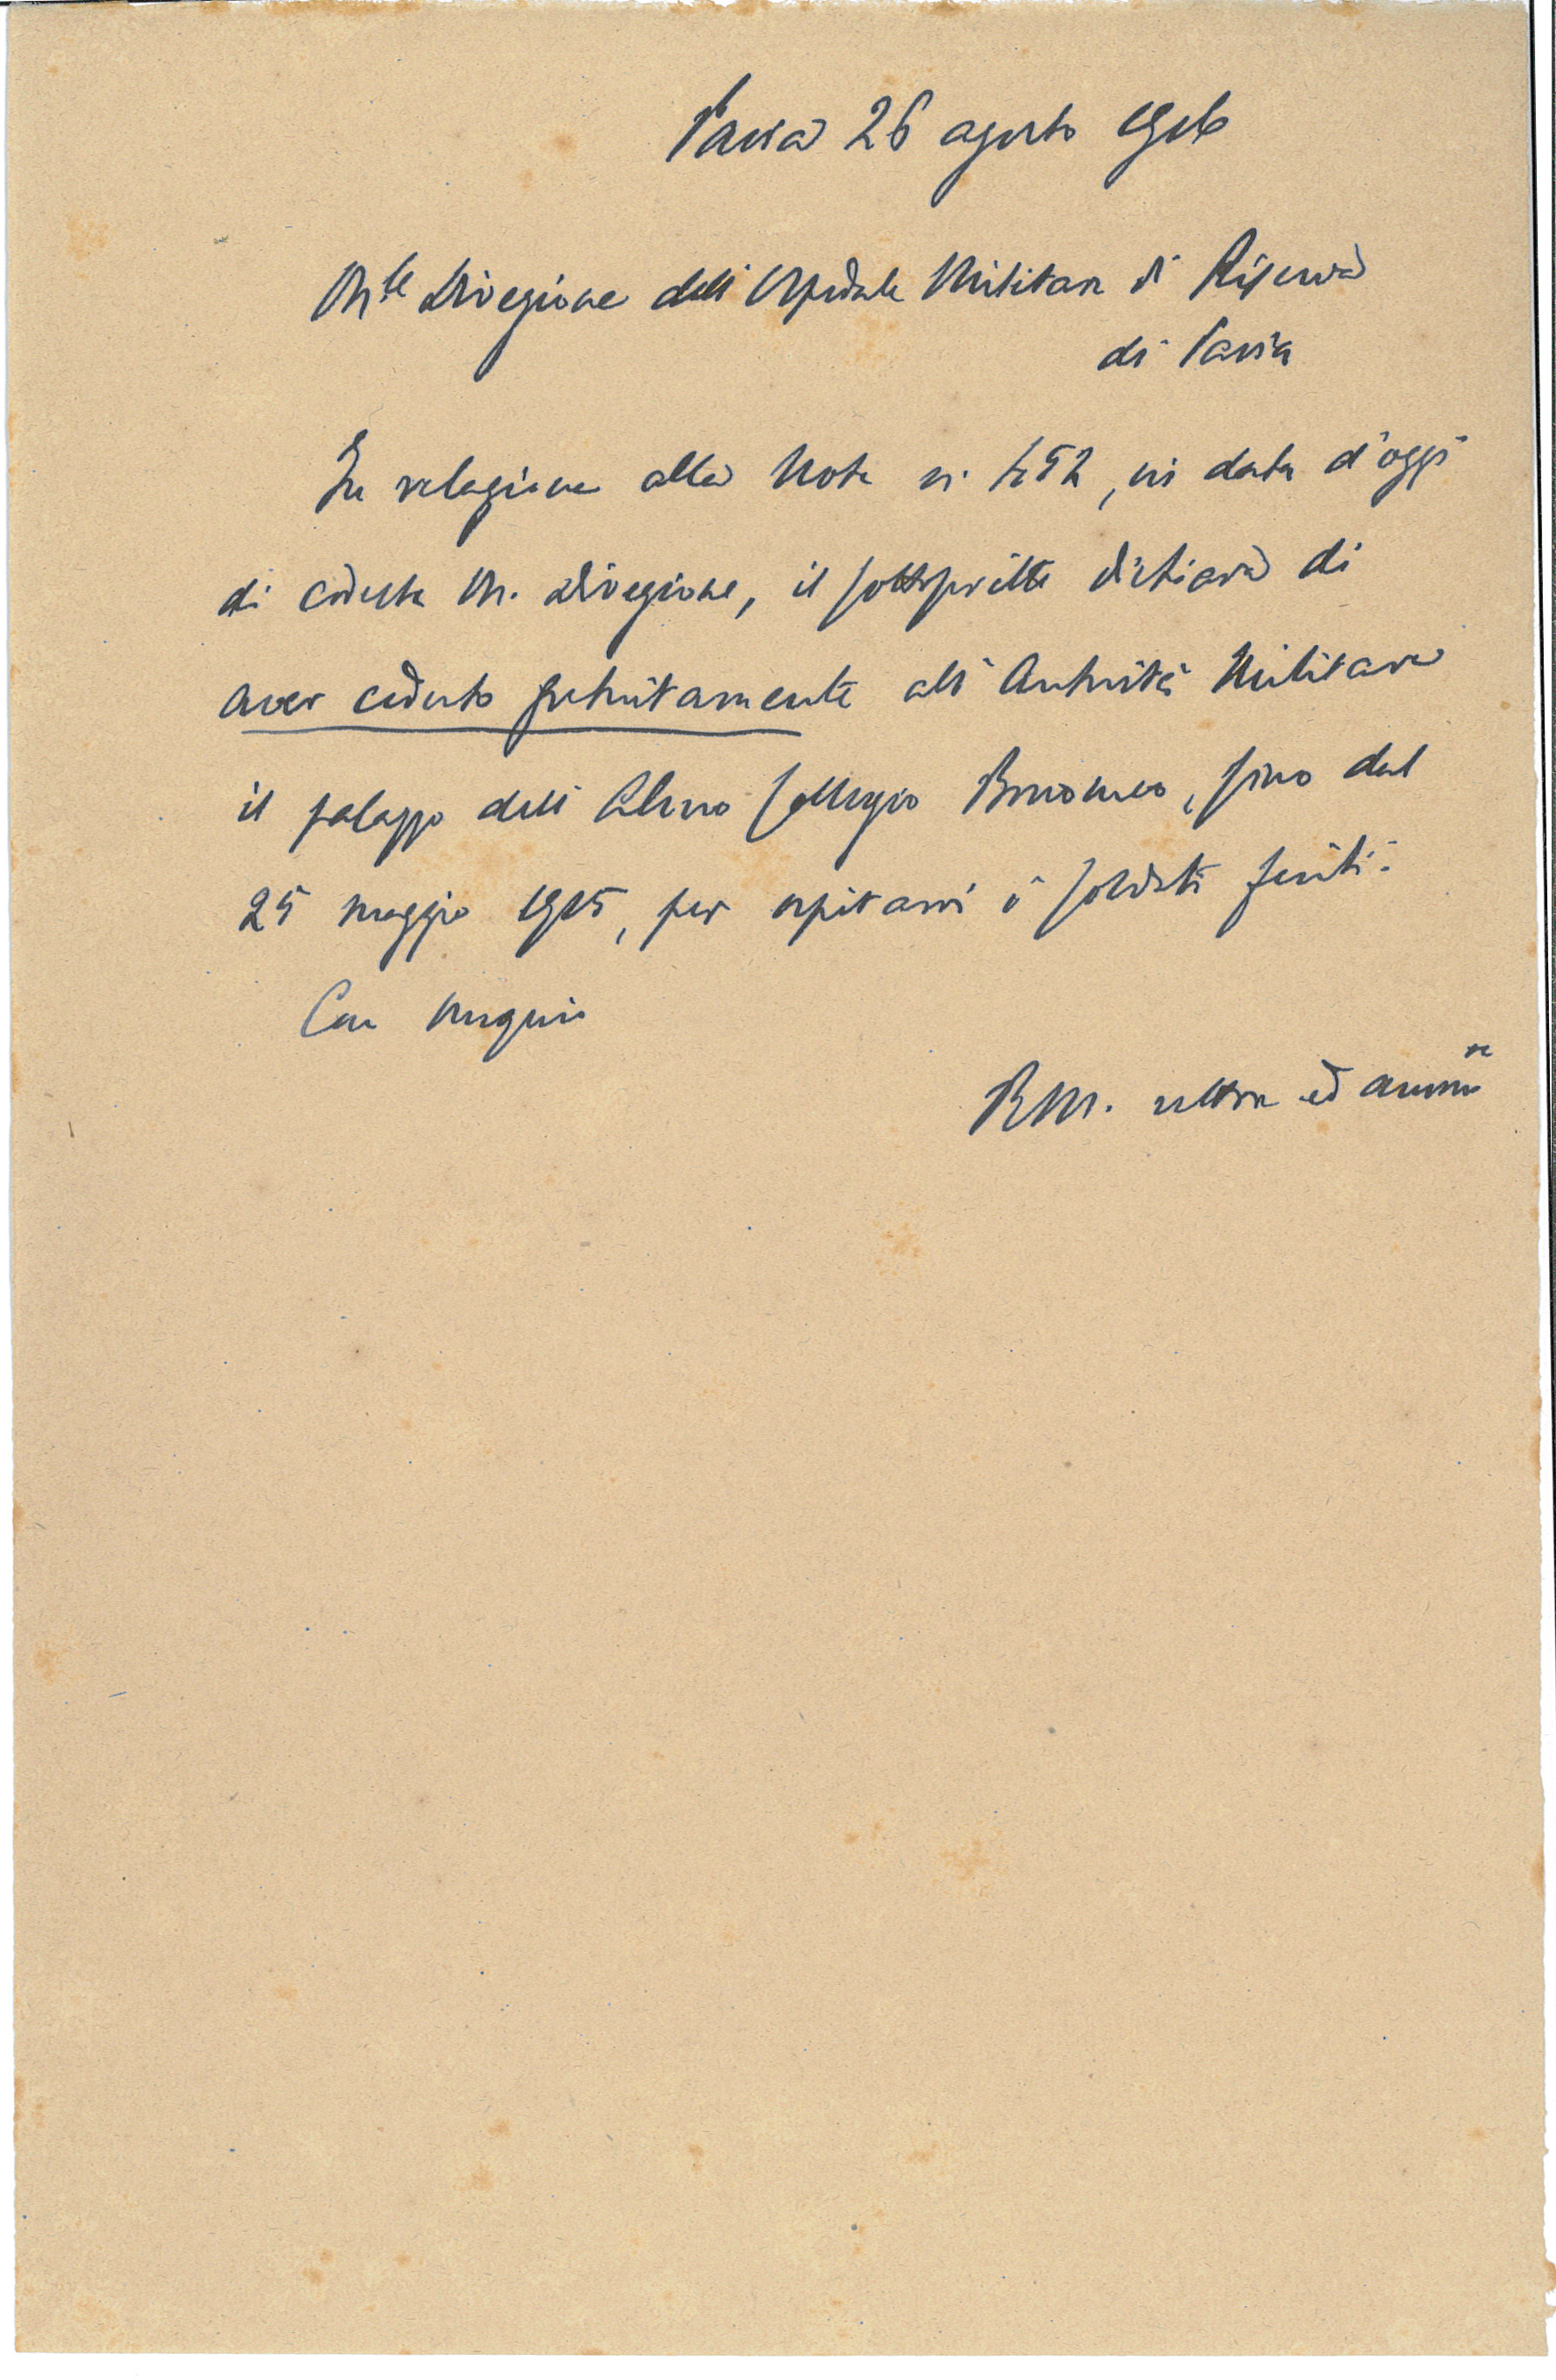 Pavia 26 agosto 1916
On.le Direzione dell'Ospedale Militare di Riserva
di Pavia
In relazione alla Nota n. 452, in data d'oggi
di codesta On. Direzione, il sottoscritto dichiara di
aver ceduto gratuitamente all'Autorità Militare
il palazzo dell'Almo Collegio Borromeo, fino dal
25 maggio 1915, per ospitarvi i soldati feriti.
Con ossequio
R.M. rettore ed amm.re